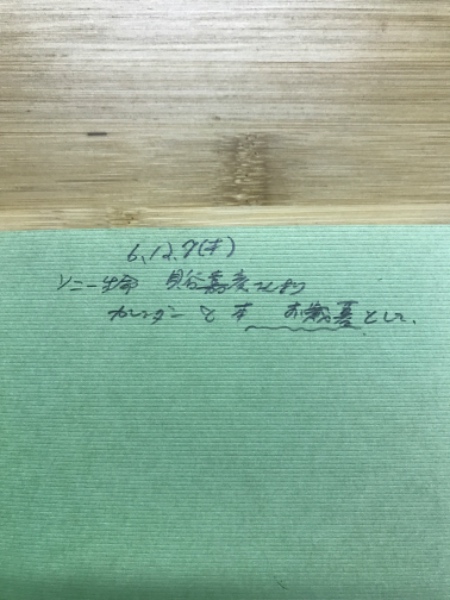 6.12.7(土)
ソニー生命 貝谷 より
カレンダーと本 お歳暮として.